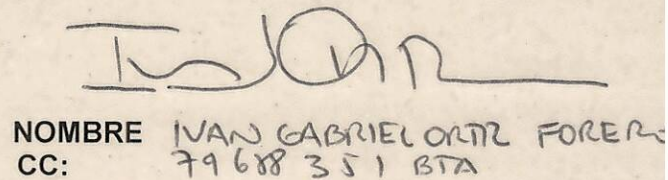 NOMBRE IVAN GABRIEL ORTIZ FORERO
CC: 79688351 BTA